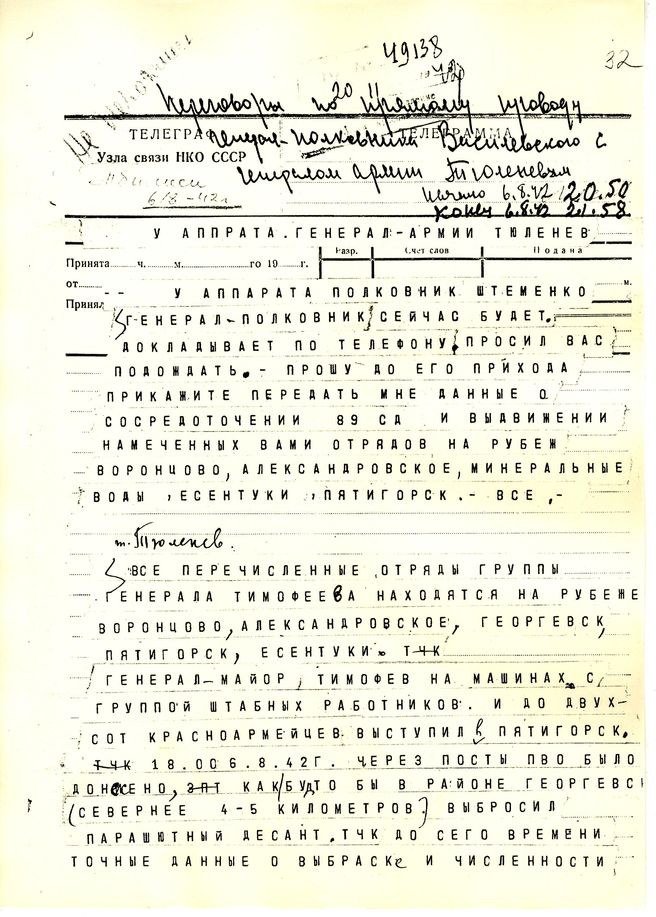 49138
32
Переговоры по прямому проводу
ТЕЛЕГРАММА
генерал-полковника Василевского с
Узла связи НКО СССР
генералом армии Тюленевым
6/8-42г.
начало 6.8.42 20.50
конец 6.8.42 21.58
У АППРАТА.ГЕНЕРАЛ-АРМИИ ТЮЛЕНЕВ
Разр. Счет слов Подана
Принята ч. м. го 19 г.
от м.
-- У АППАРАТА ПОЛКОВНИК ШТЕМЕНКО
Принял
ГЕНЕРАЛ-ПОЛКОВНИК СЕЙЧАС БУДЕТ.
ДОКЛАДЫВАЕТ ПО ТЕЛЕФОНУ.ПРОСИЛ ВАС
ПОДОЖДАТЬ.- ПРОШУ ДО ЕГО ПРИХОДА
ПРИКАЖИТЕ ПЕРЕДАТЬ МНЕ ДАННЫЕ О
СОСРЕДОТОЧЕНИИ 89 СД И ВЫДВИЖЕНИИ
НАМЕЧЕННЫХ ВАМИ ОТРЯДОВ НА РУБЕЖ
ВОРОНЦОВО,АЛЕКСАНДРОВСКОЕ,МИНЕРАЛЬНЫЕ
ВОДЫ ,ЕСЕНТУКИ ,ПЯТИГОРСК.- ВСЕ .-
т.Тюленев.
ВСЕ ПЕРЕЧИСЛЕННЫЕ ОТРЯДЫ ГРУППЫ
ГЕНЕРАЛА ТИМОФЕЕВА НАХОДЯТСЯ НА РУБЕЖЕ
ВОРОНЦОВО,АЛЕКСАНДРОВСКОЕ, ГЕОРГЕВСК,
ПЯТИГОРСК, ЕСЕНТУКИ. ТЧК
ГЕНЕРАЛ-МАЙОР ТИМОФЕВ НА МАШИНАХ С
ГРУППОЙ ШТАБНЫХ РАБОТНИКОВ. И ДО ДВУХ-
СОТ КРАСНОАРМЕЙЦЕВ ВЫСТУПИЛ в ПЯТИГОРСК.
ТЧК 18.00 6.8.42Г. ЧЕРЕЗ ПОСТЫ ПВО БЫЛО
ДОНЕСЕНО, ЗПТ КАК БУДТО БЫ В РАЙОНЕ ГЕОРГЕВС
(СЕВЕРНЕЕ 4-5 КИЛОМЕТРОВ) ВЫБРОСИЛ
ПАРАШЮТНЫЙ ДЕСАНТ.ТЧК ДО СЕГО ВРЕМЕНИ
ТОЧНЫЕ ДАННЫЕ О ВЫБРАСКе И ЧИСЛЕННОСТИ